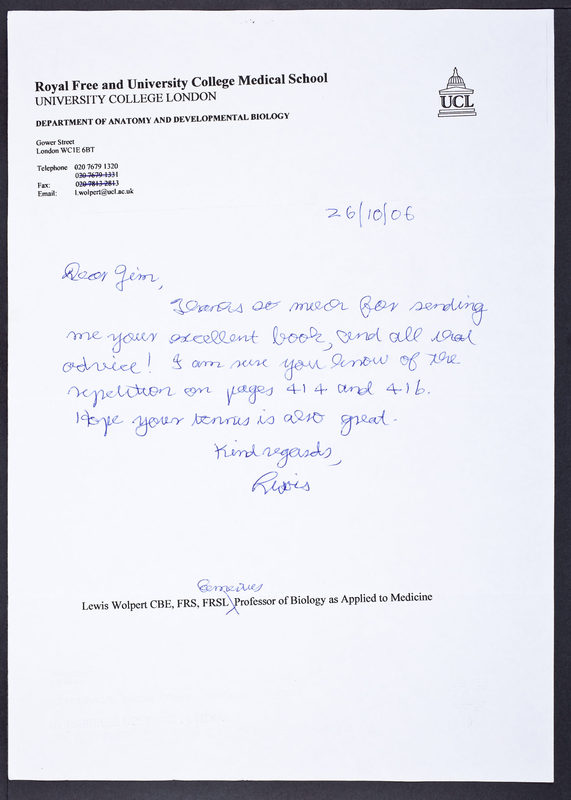 Royal Free and University College Medical School
UNIVERSITY COLLEGE LONDON
DEPARTMENT OF ANATOMY AND DEVELOPMENTAL BIOLOGY
UCL
Gower Street
London WC1E 6BT
Telephone 020 7679 1320
020 7679 1331
Fax: 020 7813 2813
Email: l.wolpert@ucl.ac.uk
26/10/06
Dear Jim,
Thanks so much for sending
me your excellent book, and all that
advice! I am sure you know of the
repetition on pages 414 and 416.
Hope your tennis is also great.
Kind regards,
Lewis
Emeritus
Lewis Wolpert CBE, FRS, FRSL Professor of Biology as Applied to Medicine